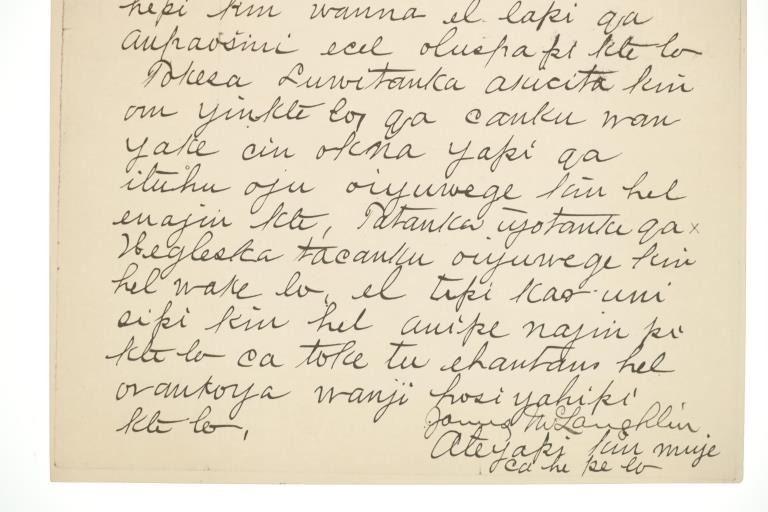 hepi kin wanna el lapi qa
anpaośini ecel oluspapi kte lo
Tokesa Luwitanka asicita kin
om yinkte lo, qa canku wan
yake cin okna yapi qa
ituhu oju oiyuwege kin hel
enajin kte, Tatanka iyotanke qa x
Hegleska tacanku oiyuwege kin
hel wake lo, el tipi kas uni
sipi kin hel anipe najin pi
kte lo ca toke tu ehantans hel
orankoya wanji hosi yahipi
kte lo,
James McLaughlin
Ateyapi kin miye
ca he pe lo